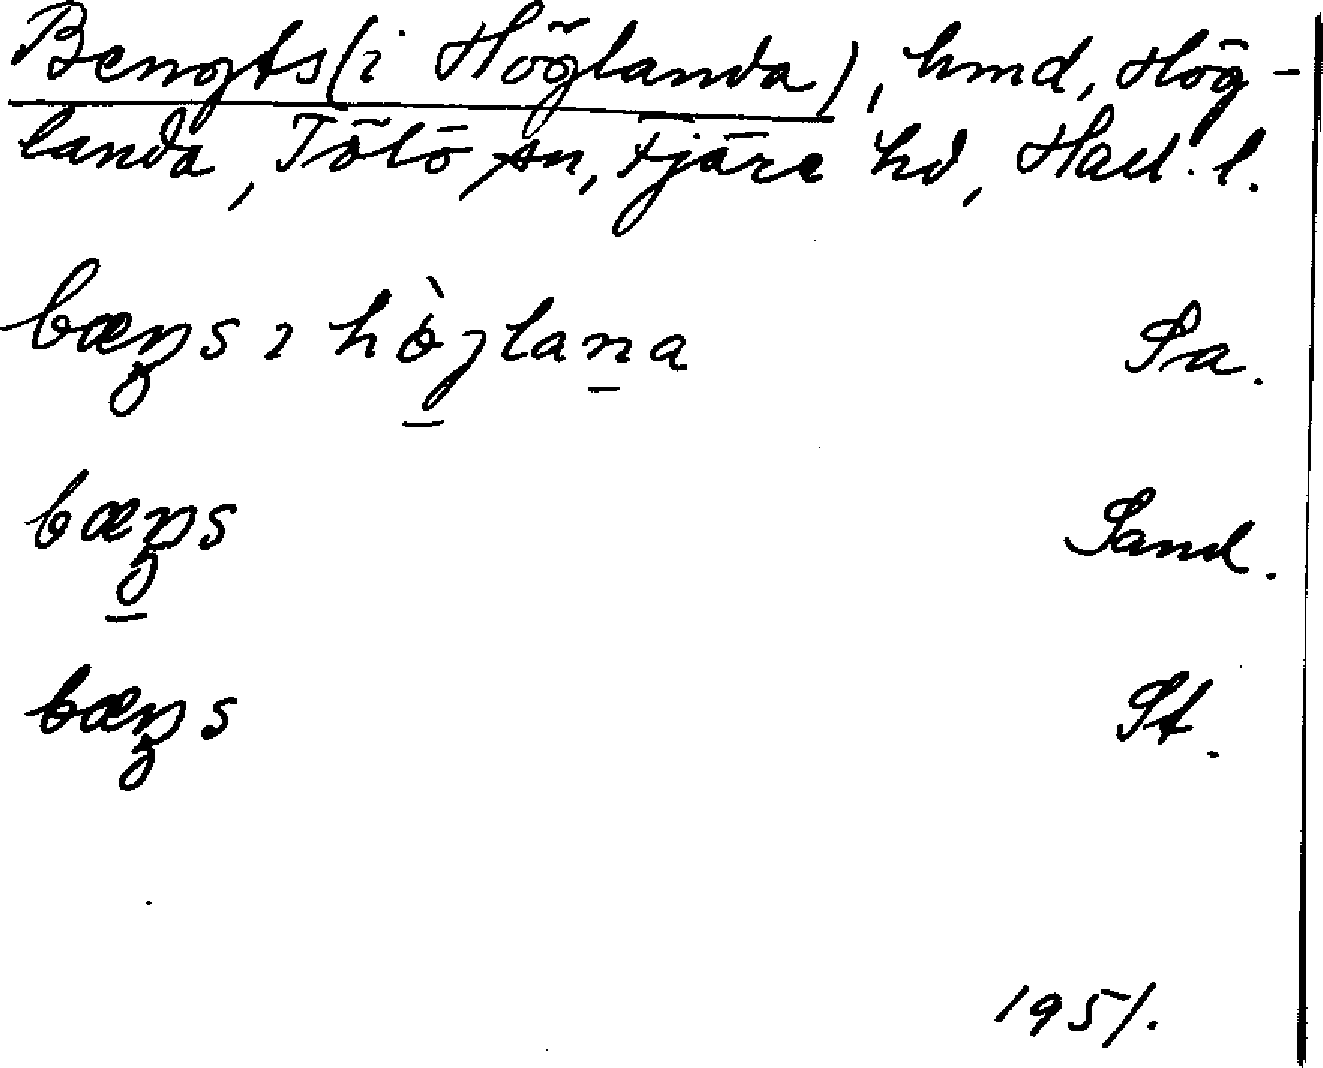 Bengts (i Höglanda), hmd, Hög-
landa, Tölö sn, Fjäre hd, Hall. l.
bæŋs ɩ hòglana Sa.
bæŋs Sand.
bæŋs St.
1951.